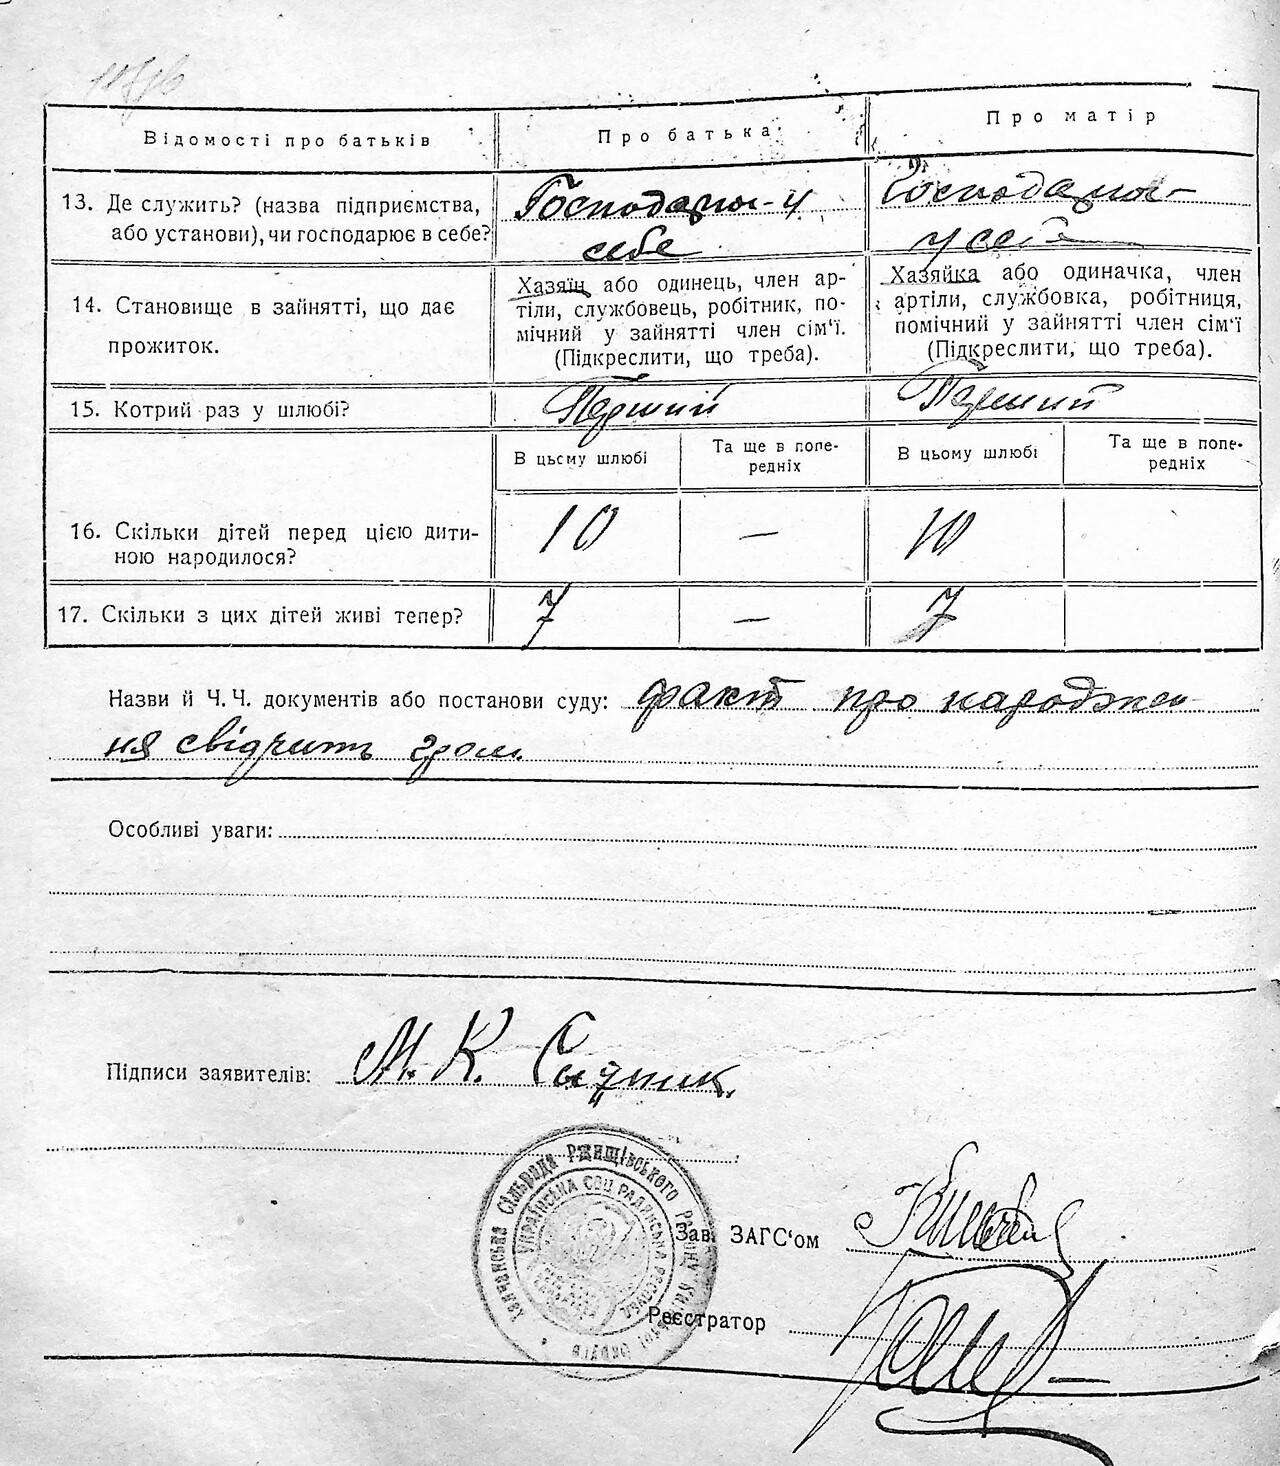 Відомості про батьків
Про батька
Про матір
13. Де служить? (назва підприємства,
або установи), чи господарює в себе?
Господарює - у
себе
Господарює -
у себе
14. Становище в зайнятті, що дає
прожиток.
Хазяїн або одинець, член ар-
тіли, службовець, робітник, по-
мічний у зайнятті член сім'ї.
(Підкреслити, що треба).
Хазяйка або одиначка, член
артіли, службовка, робітниця,
помічний у зайнятті член сім'ї
(Підкреслити, що треба).
15. Котрий раз у шлюбі?
Перший
Перший
В цьсму шлюбі
Та ще в попе-
редніх
В цьому шлюбі
Та ще в попе-
редніх
16. Скільки дітей перед цією дити-
ною народилося?
10
—
10
17. Скільки з цих дітей живі тепер?
7
—
7
Назви й Ч. Ч. документів або постанови суду: факт про народжен-
ня свідчить гром.
Особливі уваги:
Підписи заявителів: М. К. Садник.
сільрада Ржищівського Району
УКРАЇНСЬКА СОЦ РАДЯНСЬКА РЕСПУБ
Зав. ЗАГС'ом
Реєстратор